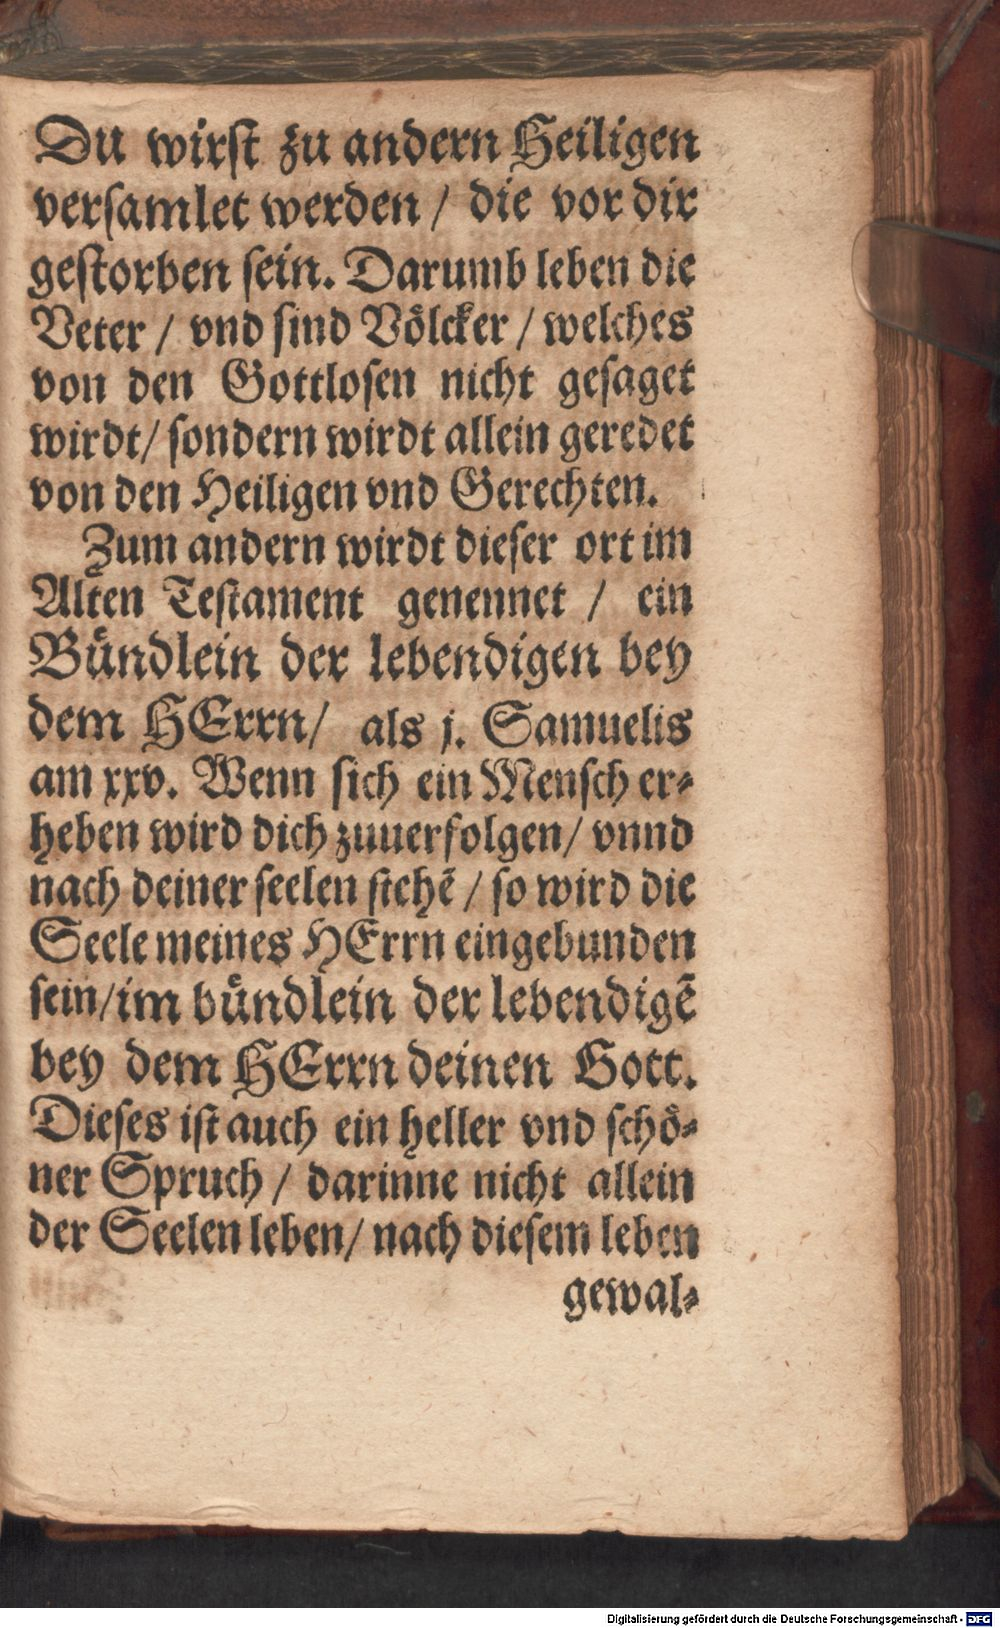 Du wirst zu andern Heiligen
versamlet werden / die vor dir
gestorben sein. Darumb leben die
Veter / vnd sind Völcker / welches
von den Gottlosen nicht gesaget
wirdt/ sondern wirdt allein geredet
von den Heiligen vnd Gerechten.
Zum andern wirdt dieser ort im
Alten Testament genennet / ein
Bündlein der lebendigen bey
dem HErrn/ als j. Samuelis
am xxv. Wenn sich ein Mensch er-
heben wird dich zuuerfolgen/ vnnd
nach deiner seelen stehẽ / so wird die
Seele meines HErrn eingebunden
sein/ im bündlein der lebendigẽ
bey dem HErrn deinen Gott.
Dieses ist auch ein heller vnd schö-
ner Spruch / darinne nicht allein
der Seelen leben/ nach diesem leben
gewal-
Digitalisierung gefördert durch die Deutsche Forschungsgemeinschaft - DFG